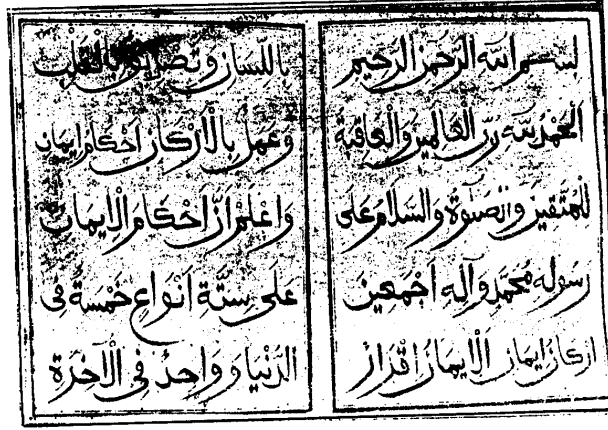 بسم الله الرحمن الرحيم
الحمد لله رب العالمين والعاقبة
للمتقين والصلوة والسلام على
رسوله محمد وآله اجمعين
اركان ايمان الايمان اقرار
باللسان وتصديق بالقلب
وعمل بالاركان احكام ايمان
واعلم ان احكام الايمان
على ستة انواع خمسة في
الدنيا وواحد في الآخرة